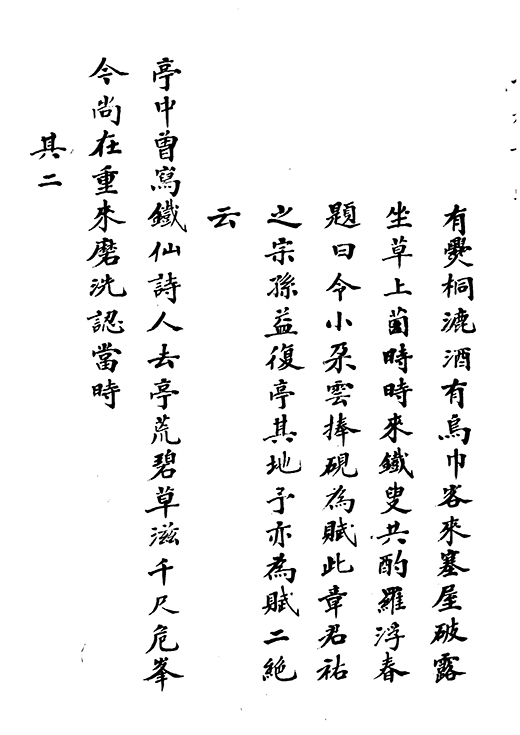 有爨桐漉酒有烏巾客來塞屋破露
坐草上茵時時來鐵叟共酌羅浮春
題曰令小朶雲捧硯為賦此章君祐
之宗孫益復亭其地予亦為賦二絶
云
亭中曽寫鐵仙詩人去亭荒碧草滋千尺危峯
今尚在重來磨洗認當時
其二